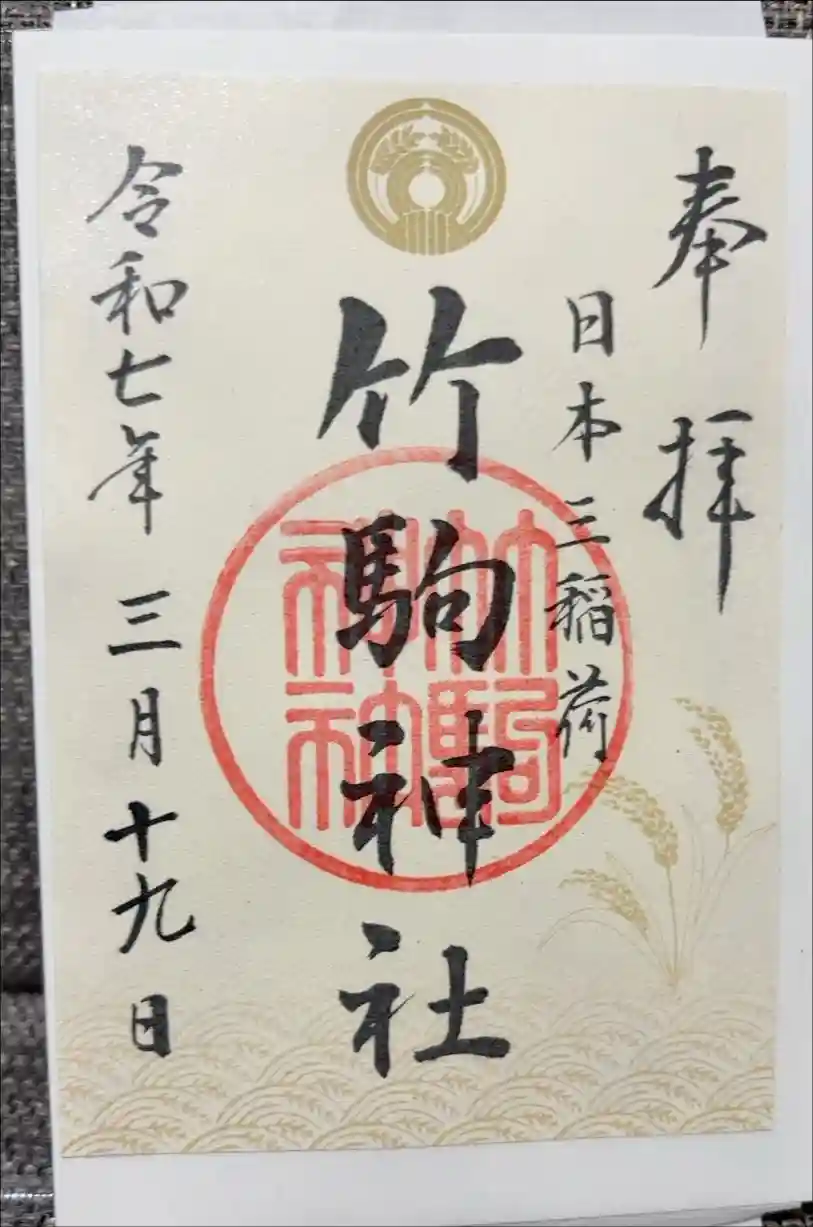 奉拝
日本三稲荷
竹駒神社
竹駒
神社
令和七年 三月十九日